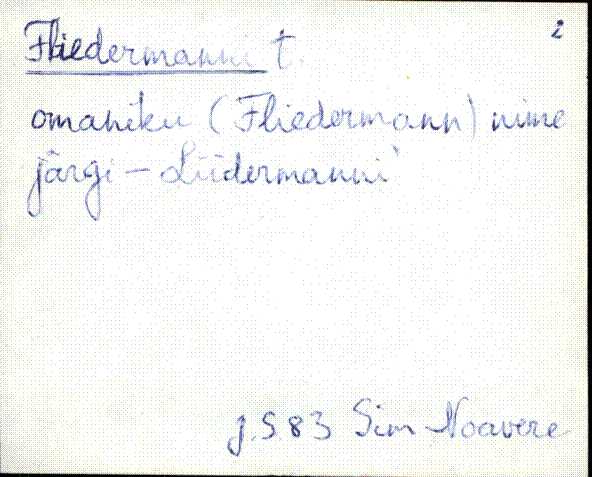 2
Fliedermanni t.
omaniku (Fliedermann) nime
järgi - Lüdermanni
j.S.83 Sim Noavere